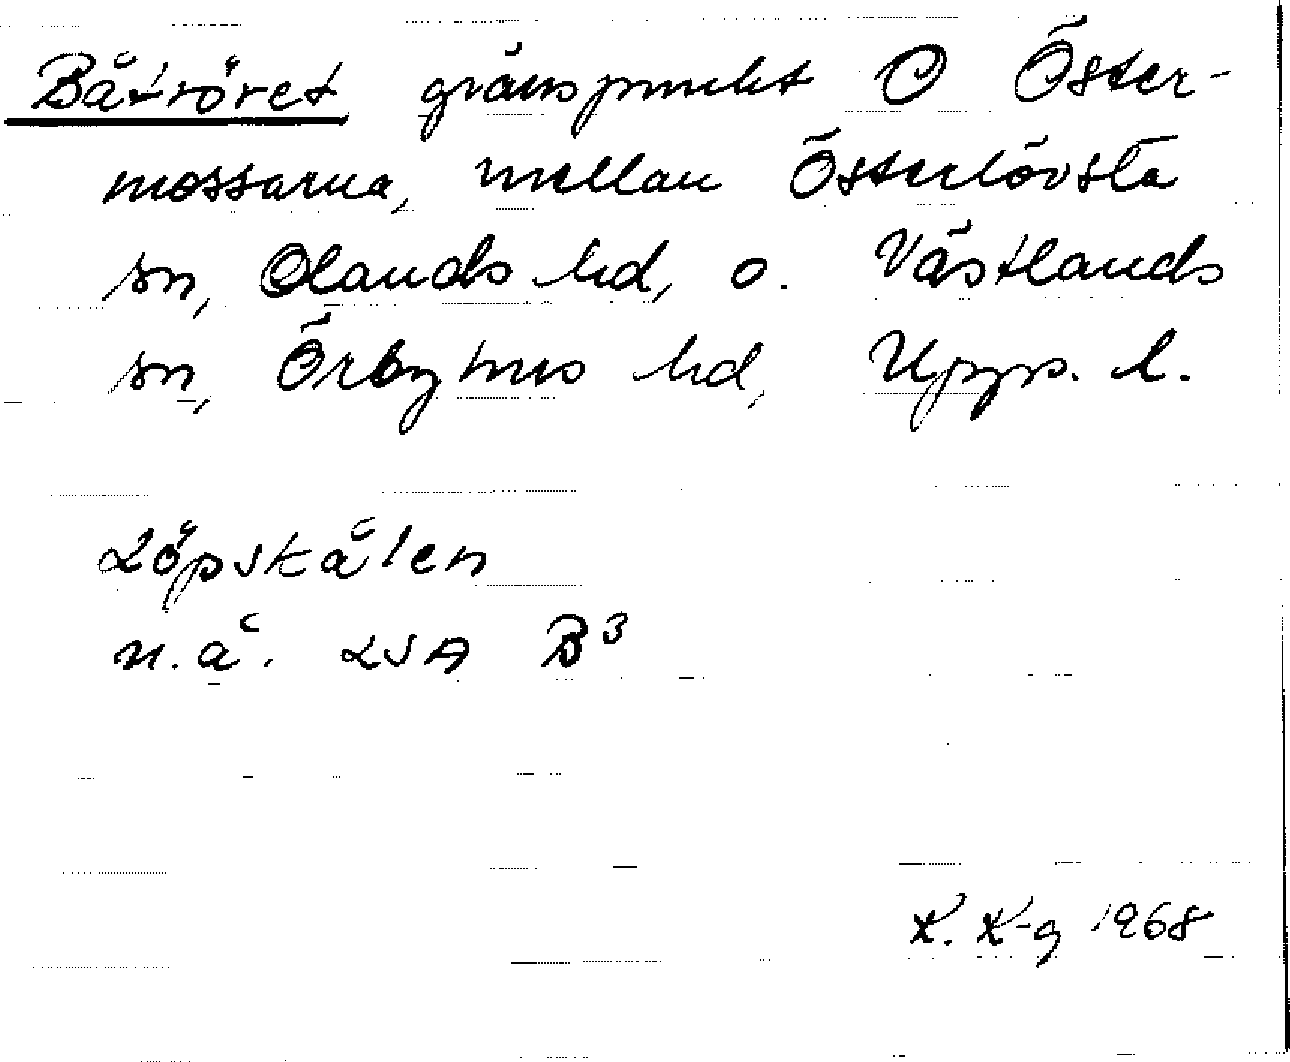 Båtröret gränspunkt O Öster-
mossarna, mellan Österlövsta
sn, Olands hd, o. Västlands
sn, Örbyhus hd, Upps. l.
Löpskälen
n.ä. LSA B3
K. K-g 1968